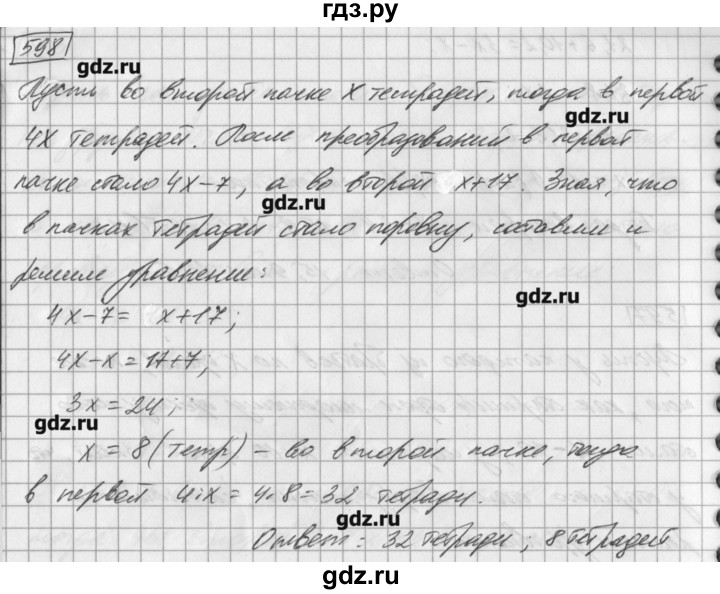 гдз.ру
598
gdz.ru
Пусть во второй пачке x тетрадей, тогда в первой
gdz.ru
4x тетрадей. После преобразований в первой
пачке стало 4x-7, а во второй x+17. Зная, что
gdz.ru
в пачках тетрадей стало поровну, составим и
решим уравнение:
gdz.ru
4x-7= x+17;
4x-x=17+7;
3x=24;
gdz.ru
x=8(тетр) - во второй пачке, тогда
в первой 4·x=4·8=32 тетради.
gdz.ru
Ответ: 32 тетради; 8 тетрадей
gdz.ru